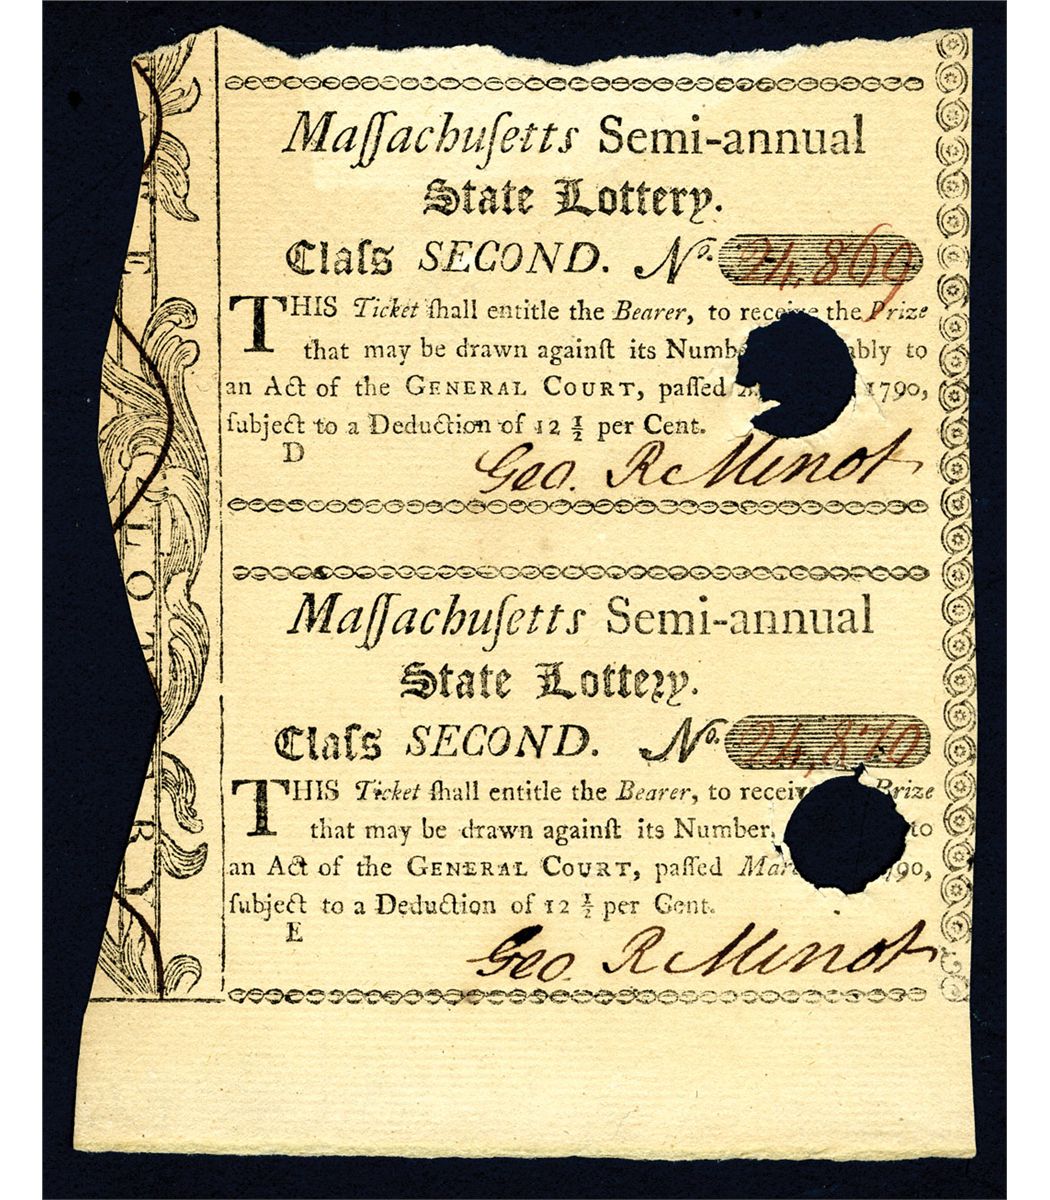 Maſſachuſetts Semi-annual
State Lottery.
Claſs SECOND. No. 24,869
THIS Ticket ſhall entitle the Bearer, to receive the Prize
that may be drawn againſt its
an Act of the GENERAL COURT, paſſed 1790,
ſubject to a Deduction of 12 ½ per Cent.
D
Geo. R Minot
Maſſachuſetts Semi-annual
State Lottery.
Claſs SECOND. No. 24,870
THIS Ticket ſhall entitle the Bearer, to Prize
that may be drawn againſt its Number, to
an Act of the GENERAL COURT, paſſed
ſubject to a Deduction of 12 ½ per Cent.
E
Geo. R Minot
E LOTTERY